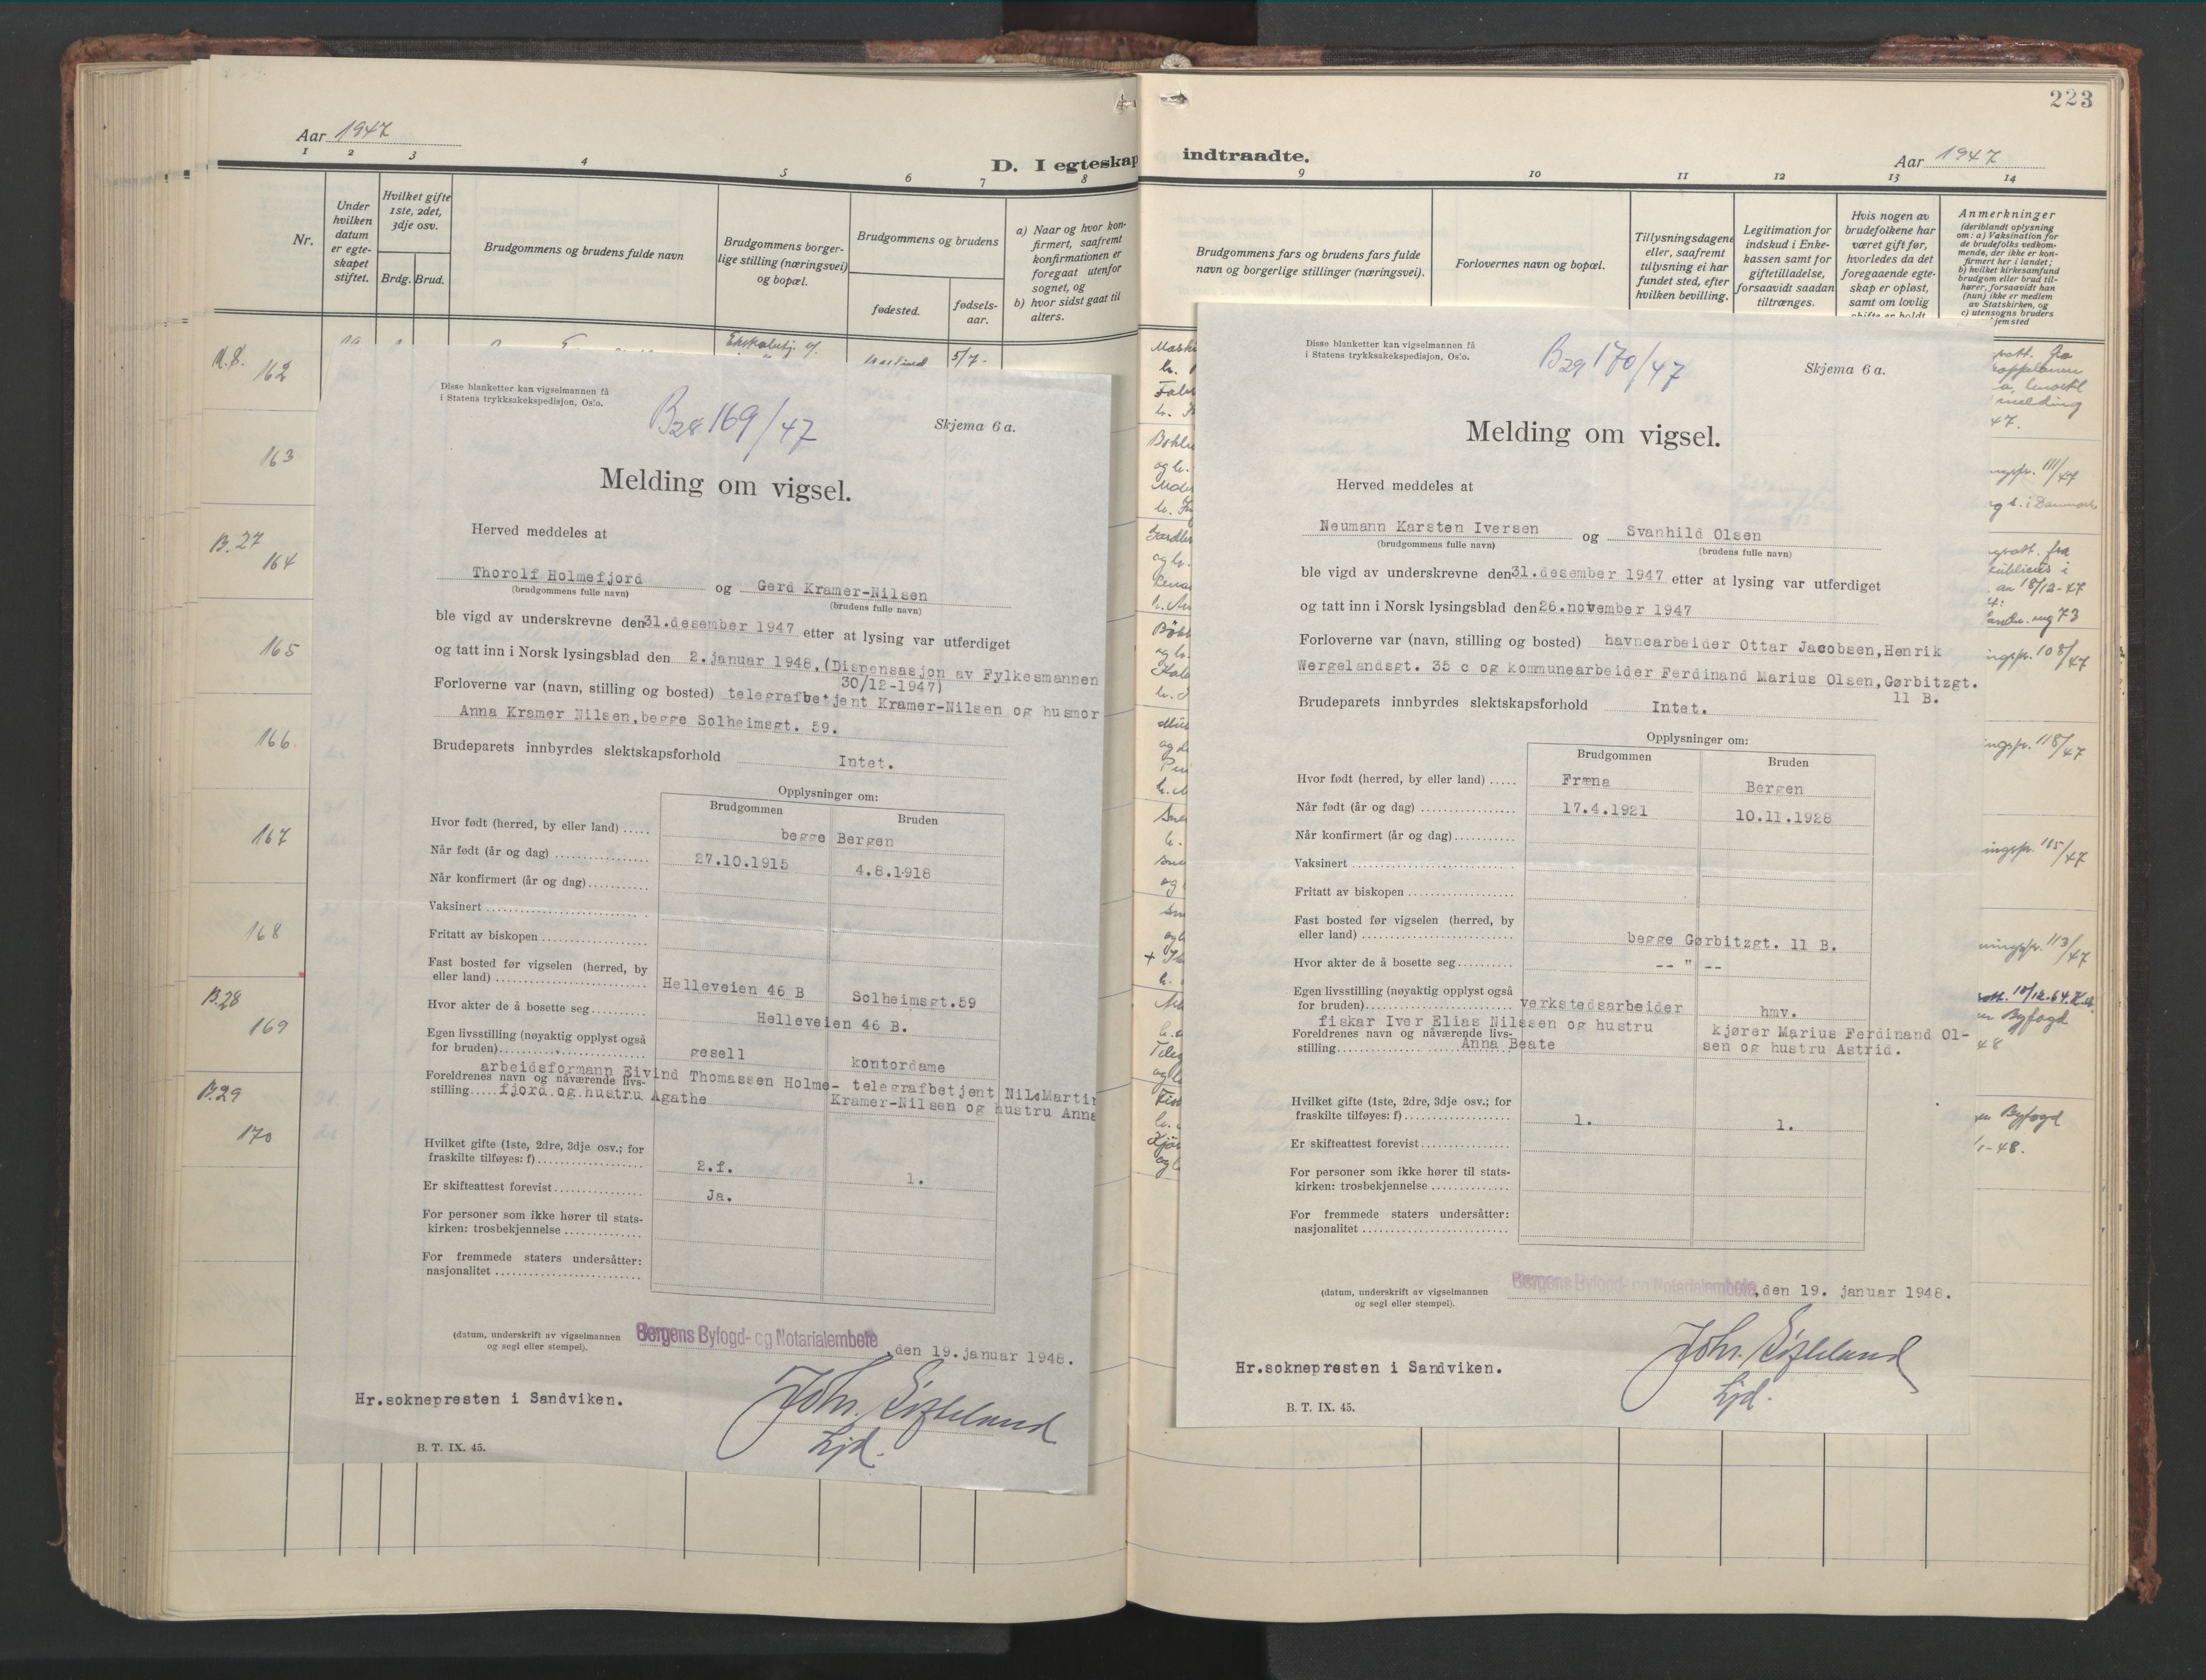 Aar 1947
1 2 3 4 5 6 7 8
D. I egteskap
Nr.
Under hvilken datum er egte-skapet stiftet.
Hvilket gifte 1ste, 2det, 3dje osv.
Brdg. Brud.
Brudgommens og brudens fulde navn
Brudgommens borger-lige stilling (næringsvei) og bopæl.
Brudgommens og brudens
fødested.
fødsels-aar.
a) Naar og hvor kon-firmert, saafremt konfirmationen er foregaat utenfor sognet, og
b) hvor sidst gaat til alters.
162
163
B.27
164
165
166.
167
168
B.28
169
B.29
170
Disse blanketter kan vigselmannen få
i Statens trykksakekspedisjon, Oslo.
B28 169/47
Skjema 6 a.
Melding om vigsel.
Herved meddeles at
Thorolf Holmefjord og Gerd Kramer-Nilsen
(brudgommens fulle navn) (brudens fulle navn)
ble vigd av underskrevne den 31.desember 1947 etter at lysing var utferdiget
og tatt inn i Norsk lysingsblad den 2.januar 1948.(Dispensasjon av Fylkesmannen
30/12-1947)
Forloverne var (navn, stilling og bosted) telegrafbetjent Kramer-Nilsen og husmor
Anna Kramer Nilsen,begge Solheimsgt. 59.
Brudeparets innbyrdes slektskapsforhold Intet.
Opplysninger om:
Brudgommen Bruden
Hvor født (herred, by eller land) ..... begge Bergen
Når født (år og dag) ............... 27.10.1915 4.8.1918
Når konfirmert (år og dag)..........
Vaksinert ..........................
Fritatt av biskopen .................
Fast bosted før vigselen (herred, by
eller land) ......................... Helleveien 46 B Solheimsgt.59
Hvor akter de å bosette seg......... Helleveien 46 B.
Egen livsstilling (nøyaktig opplyst også
for bruden)......................... gesell kontordame
arbeidsformann Eivind Thomassen Holme- telegrafbetjent Nils Martin
Foreldrenes navn og nåværende livs-
stilling..... fjord og hustru Agathe Kramer-Nilsen og hustru Anna
Hvilket gifte (1ste, 2dre, 3dje osv.; for
fraskilte tilføyes: f)................. 2.f. 1.
Er skifteattest forevist............... Ja.
For personer som ikke hører til stats-
kirken: trosbekjennelse .............
For fremmede staters undersåtter:
nasjonalitet ........................
(datum, underskrift av vigselmannen
og segl eller stempel).
Bergens Byfogd- og Notarialembete, den 19.januar 1948.
Hr.soknepresten i Sandviken.
B. T. IX. 45.
223
indtraadte.
Aar 1947
9 10 11 12 13 14
Brudgommens fars og brudens fars fulde navn og borgerlige stillinger (næringsvei).
Forlovernes navn og bopæl.
Tillysningsdagene eller, saafremt tillysning ei har fundet sted, efter hvilken bevilling.
Legitimation for indskud i Enke-kassen samt for giftetilladelse, forsaavidt saadan tiltrænges.
Hvis nogen av brudefolkene har været gift før, hvorledes da det foregaaende egte-skap er opløst, samt om lovlig skifte er holdt
Anmerkninger (deriblandt oplysning om: a) Vaksination for de brudefolks vedkom-mende, der ikke er kon-firmert her i landet; b) hvilket kirkesamfund brudgom eller brud til-hører, forsaavidt han (hun) ikke er medlem av Statskirken, og c) utensogns bruders hjemsted
Disse blanketter kan vigselmannen få
i Statens trykksakekspedisjon, Oslo.
B29 170/47
Skjema 6 a.
Melding om vigsel.
Herved meddeles at
Neumann Karsten Iversen og Svanhild Olsen
(brudgommens fulle navn) (brudens fulle navn)
ble vigd av underskrevne den 31.desember 1947 etter at lysing var utferdiget
og tatt inn i Norsk lysingsblad den 26.november 1947
Forloverne var (navn, stilling og bosted) havnearbeider Ottar Jacobsen,Henrik
Wergelandsgt. 35 c og kommunearbeider Ferdinand Marius Olsen,Gørbitzgt.
11 B.
Brudeparets innbyrdes slektskapsforhold Intet.
Opplysninger om:
Brudgommen Bruden
Hvor født (herred, by eller land) ..... Fræna Bergen
Når født (år og dag) ............... 17.4.1921 10.11.1928
Når konfirmert (år og dag)..........
Vaksinert ..........................
Fritatt av biskopen .................
Fast bosted før vigselen (herred, by
eller land) ......................... begge Gørbitzgt. 11 B.
Hvor akter de å bosette seg......... -- " --
Egen livsstilling (nøyaktig opplyst også
for bruden)......................... verkstedsarbeider hmv.
fiskar Iver Elias Nilssen og hustru kjører Marius Ferdinand Ol-
Foreldrenes navn og nåværende livs-
stilling............... Anna Beate sen og hustru Astrid.
Hvilket gifte (1ste, 2dre, 3dje osv.; for
fraskilte tilføyes: f)................. 1. 1.
Er skifteattest forevist...............
For personer som ikke hører til stats-
kirken: trosbekjennelse .............
For fremmede staters undersåtter:
nasjonalitet ........................
(datum, underskrift av vigselmannen
og segl eller stempel).
Bergens Byfogd- og Notarialembete, den 19. januar 1948.
Hr.soknepresten i Sandviken.
B. T. IX. 45.
47.
111/47
i Danmark
18/12-47
108/47
118/47
113/47
Byfogd
48
Byfogd
1-48.